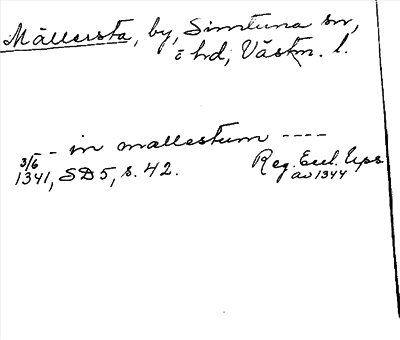 Mällersta, by, Simtuna sn,
o hd, Västm. l.
- in mallestum ----
3/6
1341, SD5, s. 42. Reg. Eccl. Ups
av 1344